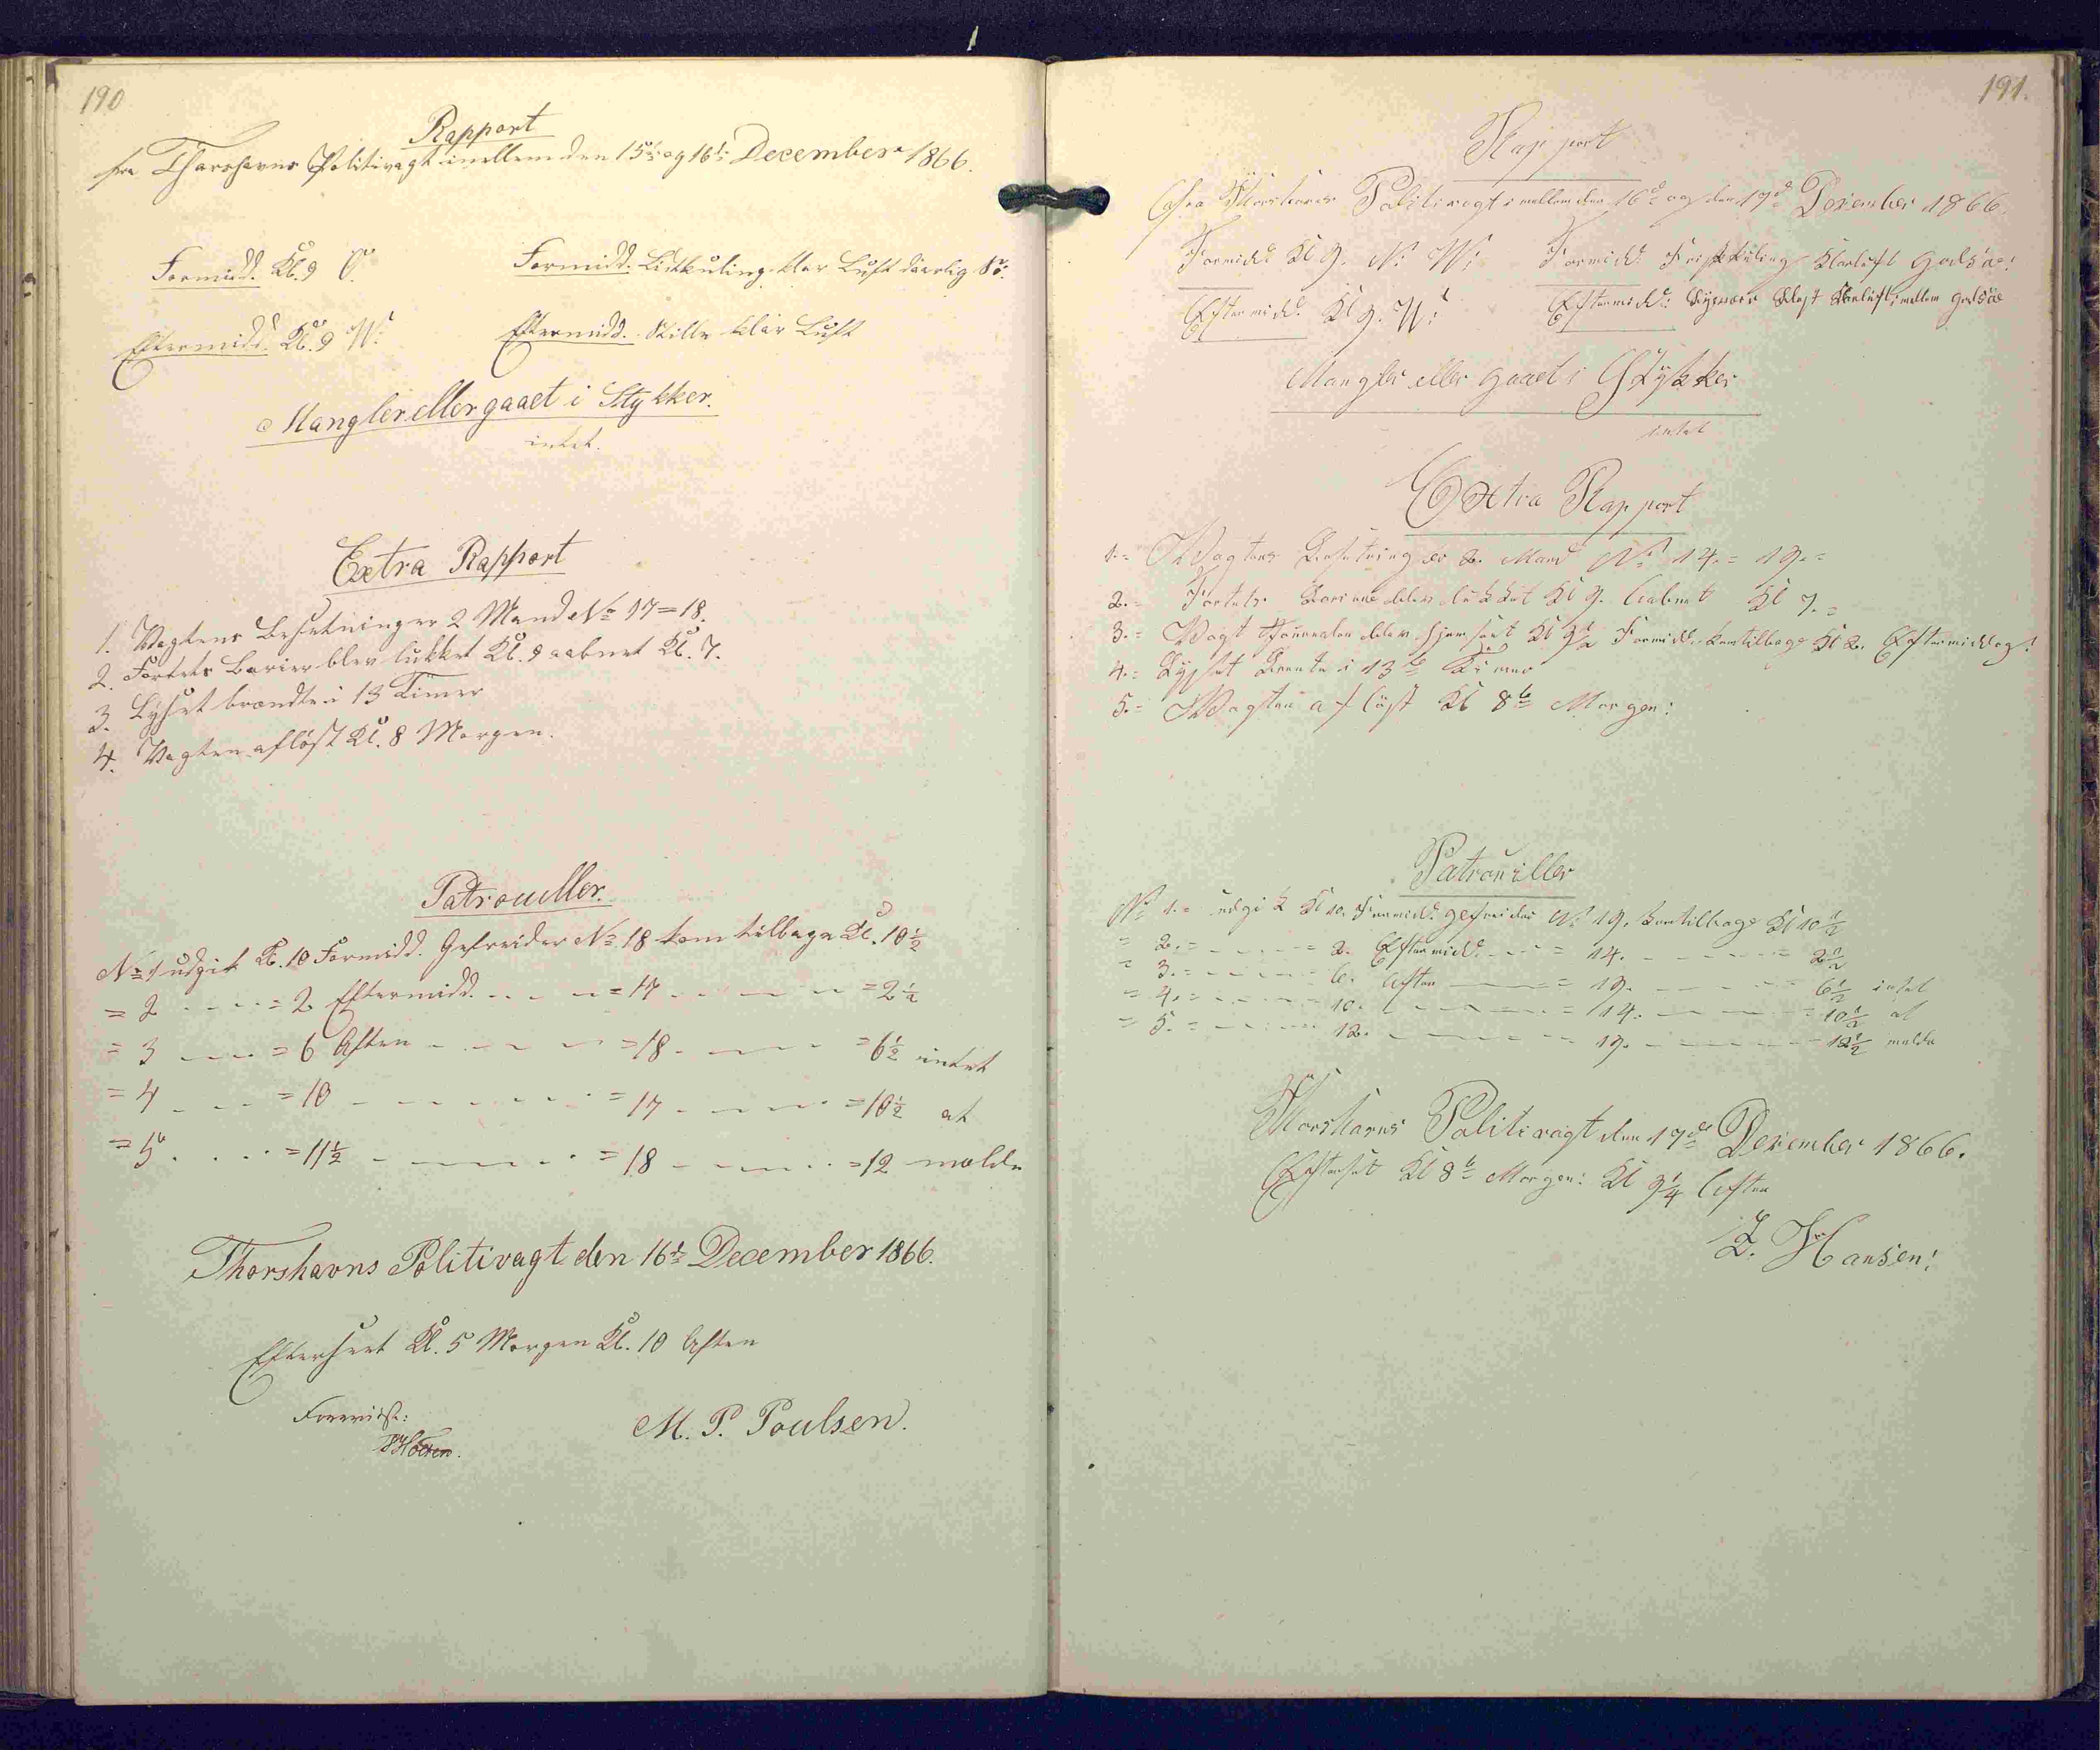 190
Rapport
fra Thorshavns Politivagt imellem den 15de og 16de December 1866.
Formidd. Kl. 9 O. Formidd. Lidtkuling klar Luft daarlig Sö.
Eftermidd. Kl. 9 W. Eftermidd. Stille klar Luft
Mangler eller gaaet i Stykker.
intet.
Extra Rapport
1. Vagtens Besætning er 2 Mand No 17 = 18.
2. Fortets Barier blev lukket Kl. 9 aabnet Kl. 7.
3. Lyset brændte i 13 Timer
4. Vagten aflöst Kl. 8 Morgen.
Patrouiller.
No 1 udgik Kl. 10 Formidd. Gefreider No 18 kom tilbage Kl. 10½
= 2 - - - = 2 Eftermidd. - - - = 17 - - - = 2½
= 3 - - - = 6 Aften - - - = 18 - - - = 6½ intet
= 4 - - - = 10 - - - = 17 - - - = 10½ at
= 5 - - - = 11½ - - - = 18 - - - = 12 melde
Thorshavns Politivagt den 16de December 1866.
Efterseet Kl. 5 Morgen Kl. 10 Aften
Foreviist:
M. P. Poulsen.
191.
Rapport
fra Thorshavns Politivagt imellem den 16de og den 17de December 1866.
Formidd. Kl 9. N. W. Formidd. Friskkuling Klarluft God Sö.
Eftermidd. Kl 9. W. Eftermidd. Klarluft imellem God Sö
Mangler eller gaaet i Stykker
intet
Extra Rapport
1. = Vagtens Besætning er 2. Mand No 14. = 19. =
2. = Fortets Bariere blev lukket Kl 9. Aabnet Kl 7. =
3. = Vagt Journalen blev hjemsent Kl 9½ Formidd. kom tilbage Kl 2. Eftermiddag.
4. = Lyset Brente i 13 Timer
5. = Vagten aflöst Kl 8 Morgen.
Patrouiller
No 1. = udgik Kl 10. Formidd. gefreider No 19. kom tilbage Kl 10½
= 2. = - - - = 2. Eftermidd. - - - = 14. - - - = 2½
= 3. = - - - = 6. Aften - - - = 19. - - - 6½ intet
= 4. = - - - 10. - - - = 14. - - - = 10½ at
= 5. = - - - 12. - - - = 19. - - - 12½ melde
Thorshavns Politivagt den 17de December 1866.
Efterset Kl 8 Morgen. Kl 9¼ Aften
Z. Hansen.